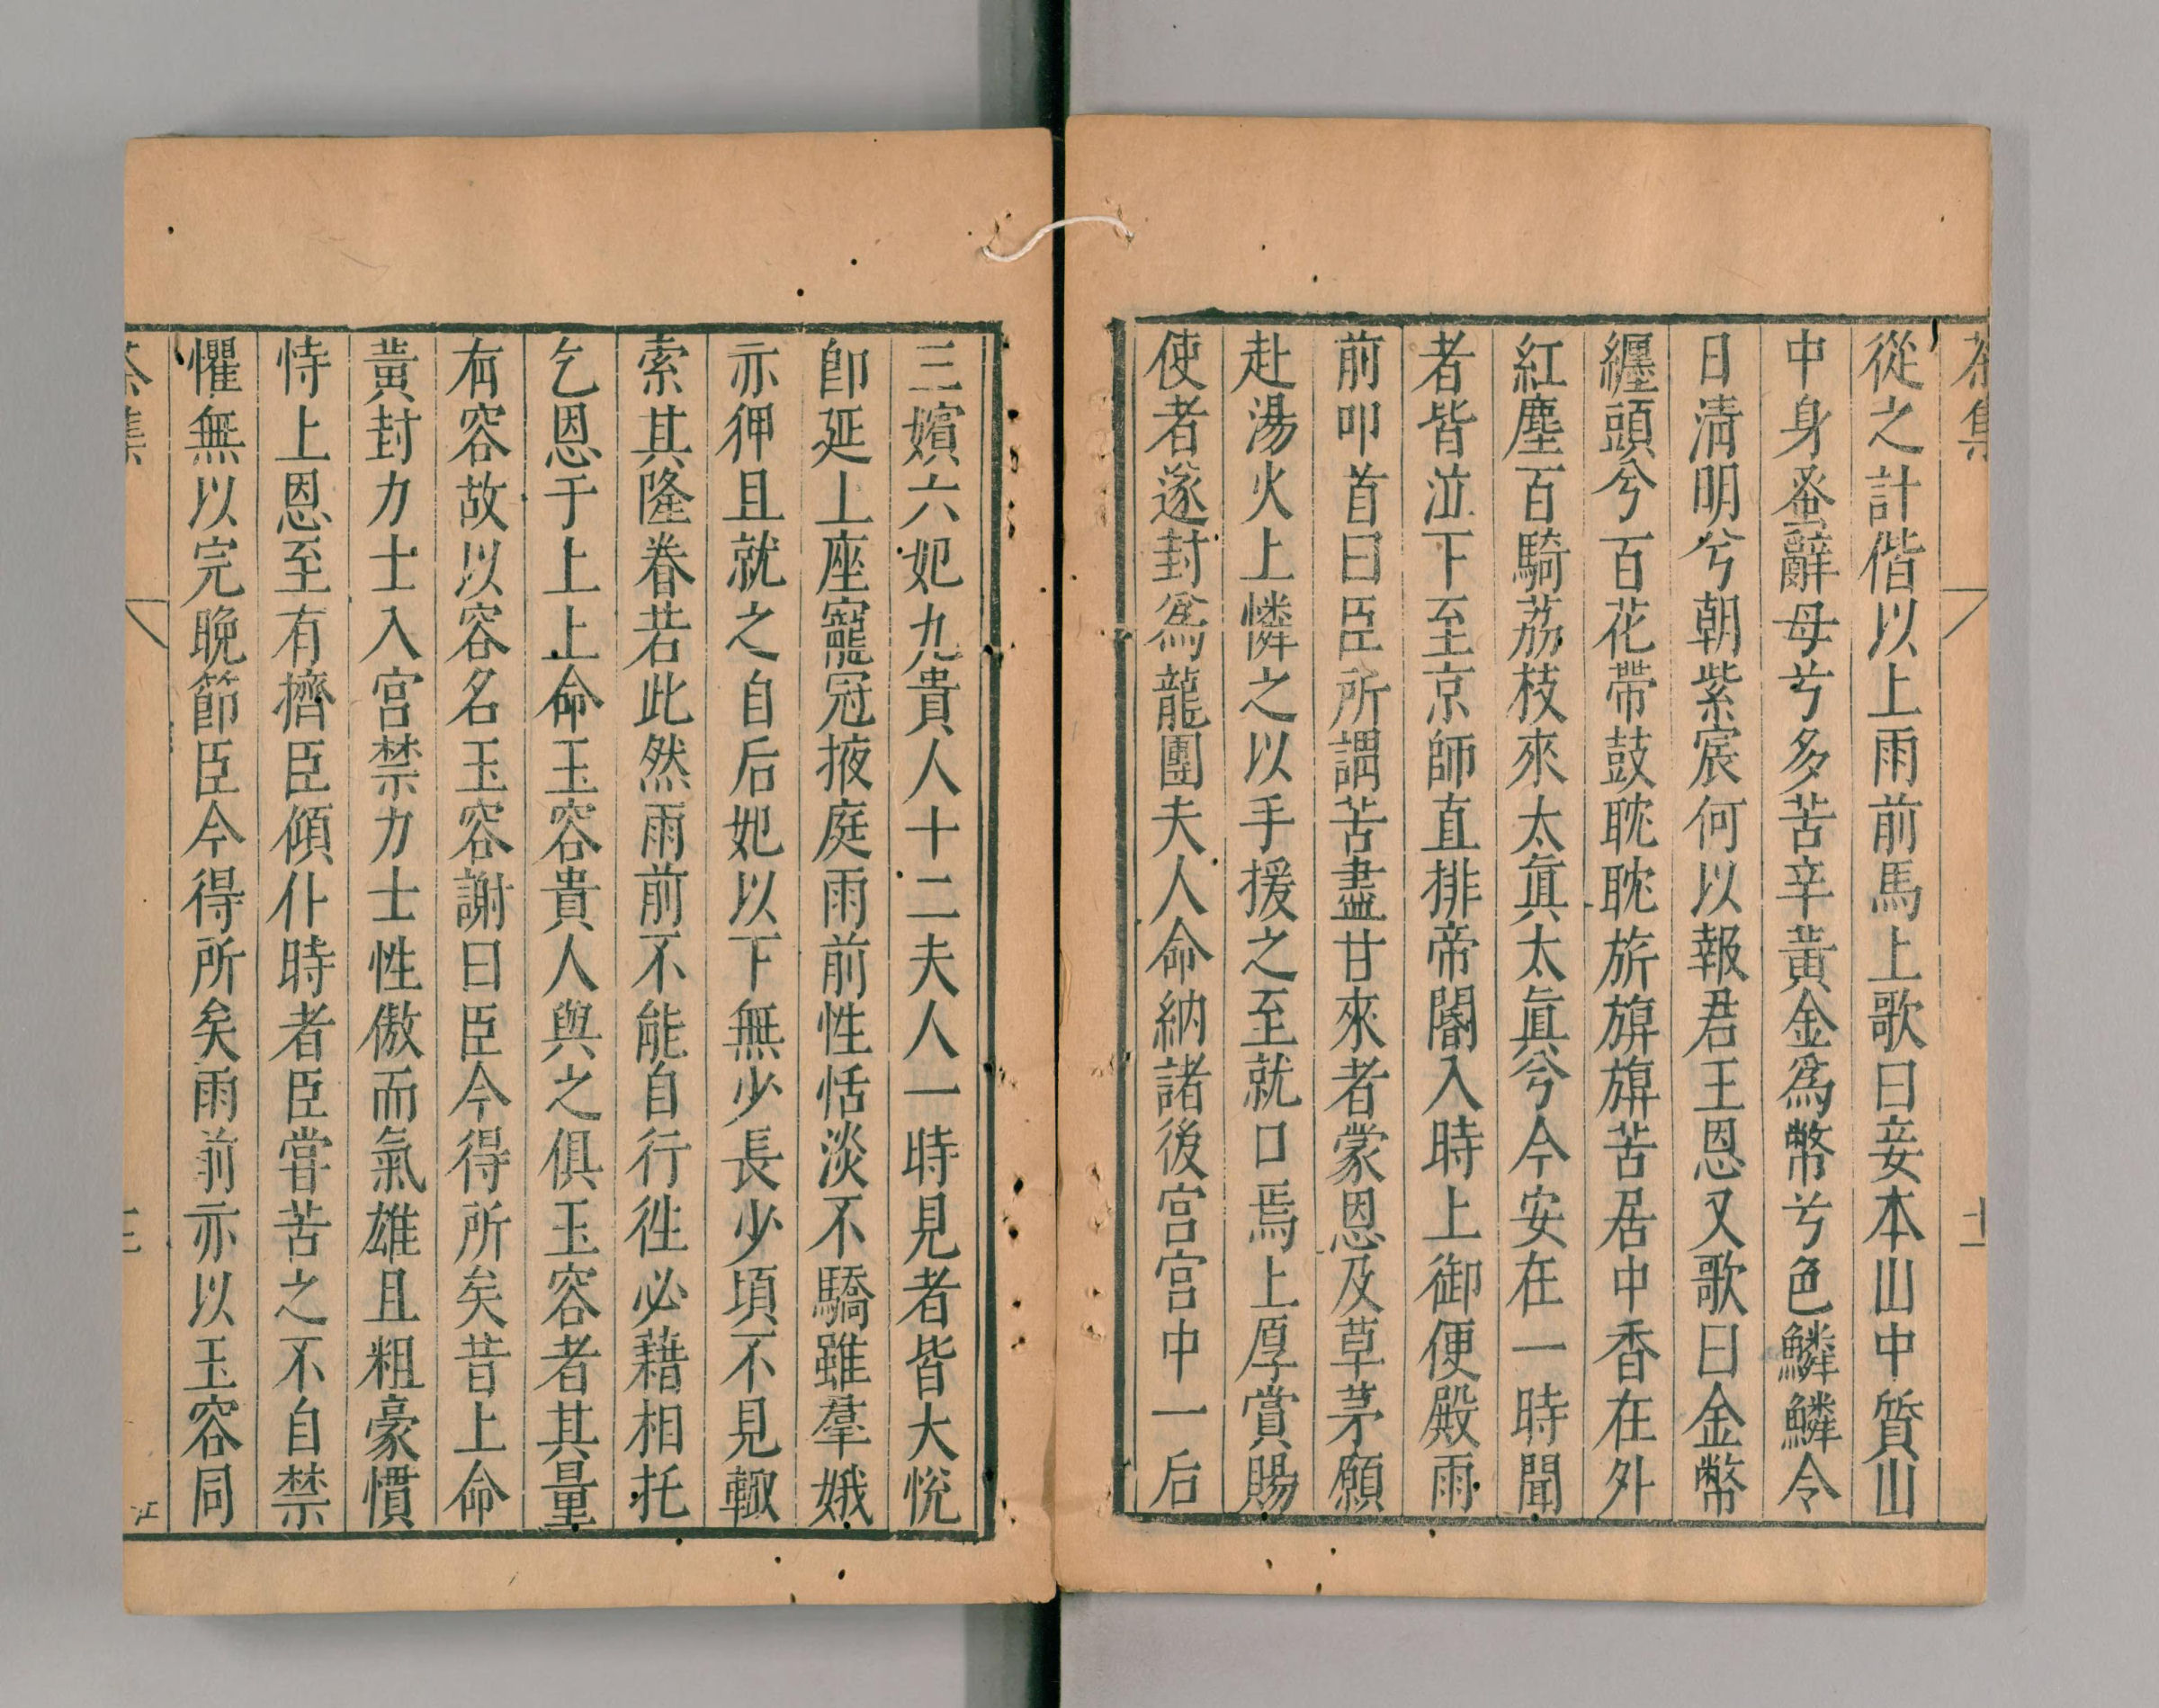 茶集
從之計偕以上雨前馬上歌曰妾本山中質山
中身蚤辭母兮多苦辛黃金爲幣兮色鱗鱗今
日清明兮朝紫宸何以報君王恩又歌曰金幣
纒頭兮百花帶鼓耽耽旂旗旗苦居中香在外
紅塵百騎荔枝來太眞太眞兮今安在一時聞
者皆泣下至京師直排帝閽入時上御便殿雨
前叩首曰臣所謂苦盡甘來者蒙恩及草茅願
赴湯火上憐之以手援之至就口焉上厚賞賜
使者遂封爲龍團夫人命納諸後宮宮中一后
三嬪六妃九貴人十二夫人一時見者皆大悅
卽延上座寵冠掖庭雨前性恬淡不驕雖羣娥
亦狎且就之自后妃以下無少長少頃不見輙
索其隆眷若此然雨前不能自行徃必藉相托
乞恩于上上命玉容貴人與之俱玉容者其量
有容故以容名玉容謝曰臣今得所矣昔上命
黃封力士入宮禁力士性傲而氣雄且粗豪慣
恃上恩至有擠臣傾仆時者臣嘗苦之不自禁
懼無以完晚節臣今得所矣雨前亦以玉容同
茶集